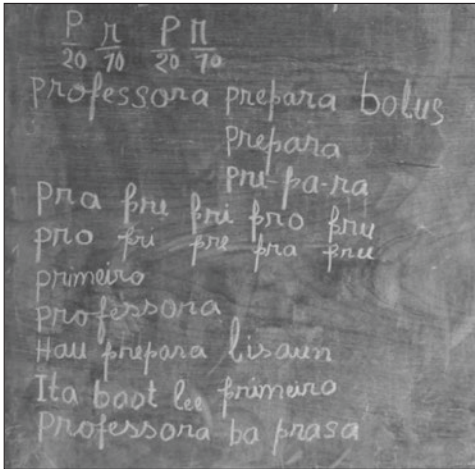 P r P r
20 70 20 70
professora prepara bolus
prepara
pre-pa-ra
pra pre pri pro pru
pro pri pre pra pru
primeiro
professora
Hau prepara lisaun
Ita boot lee primeiro
Professora ba prasa